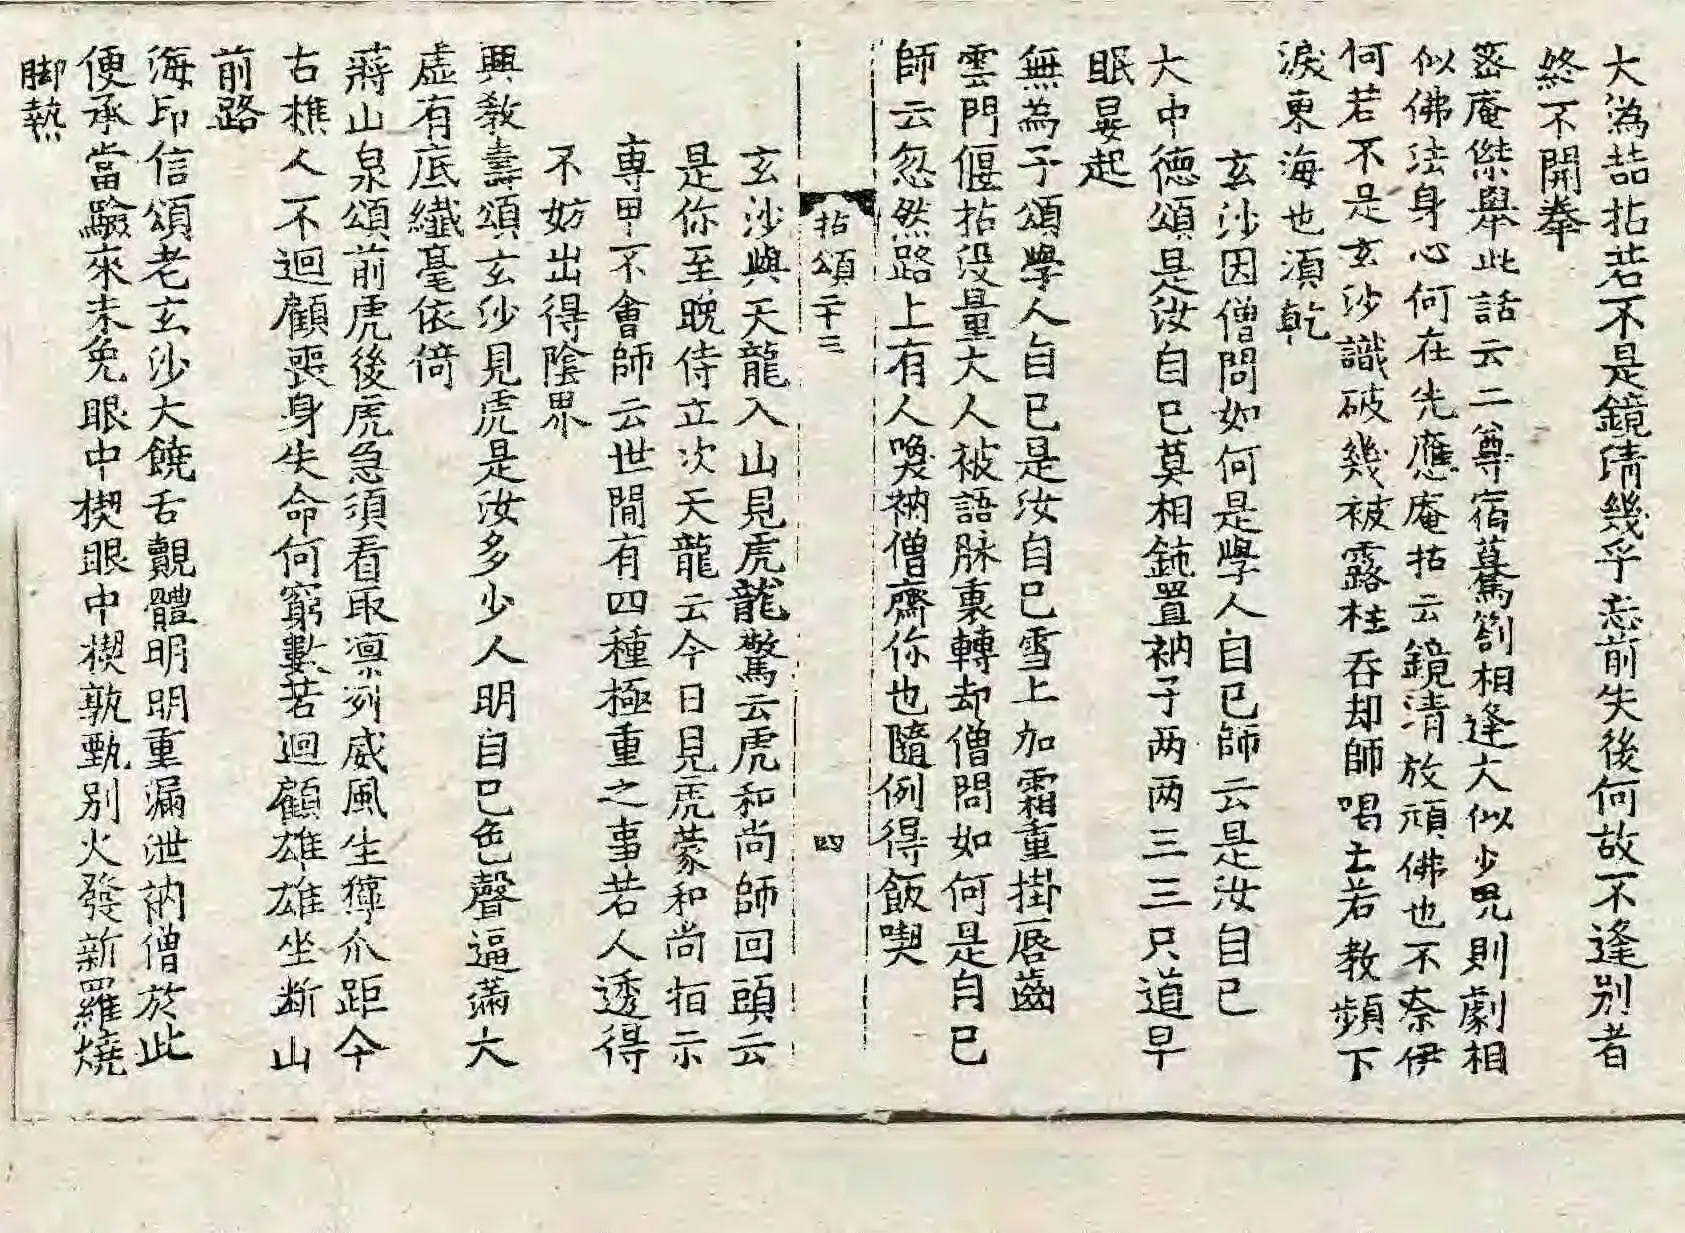 大溈喆拈若不是鏡淸幾乎忘前失後何故不逢別者
終不開拳
密庵傑舉此話云二尊宿驀劄相逢大似少皃則劇相
似佛法身心何在先應庵拈云鏡清放頑佛也不奈伊
何若不是玄沙識破幾被露柱吞却師喝云若教頻下
淚東海也須乾
玄沙因僧問如何是學人自己師云是汝自己
大中德頌是汝自己莫相鈍置衲子两两三三只道早
眠晏起
無為子頌學人自己是汝自己雪上加霜重掛唇齒
雲門偃拈没量大人被語脉裏轉却僧問如何是自己
師云忽然路上有人喚衲僧齋你也隨例得飯喫
拈頌二十三
四
玄沙與天龍入山見虎龍驚云虎和尚師回頭云
是你至晚侍立次天龍云今日見虎蒙和尚指示
專甲不會師云世間有四種極重之事若人透得
不妨出得陰界
興教壽頌玄沙見虎是汝多少人明自己色聲逼滿大
虛有底纖毫依倚
蔣山泉頌前虎後虎急須看取凛冽威風生獰爪距今
古樵人不迴顧喪身失命何窮數若迴顧雄雄坐断山
前路
海印信頌老玄沙大饒舌覿體明明重漏泄衲僧於此
便承當驗來未免眼中楔眼中楔孰甄別火發新羅燒
脚熱